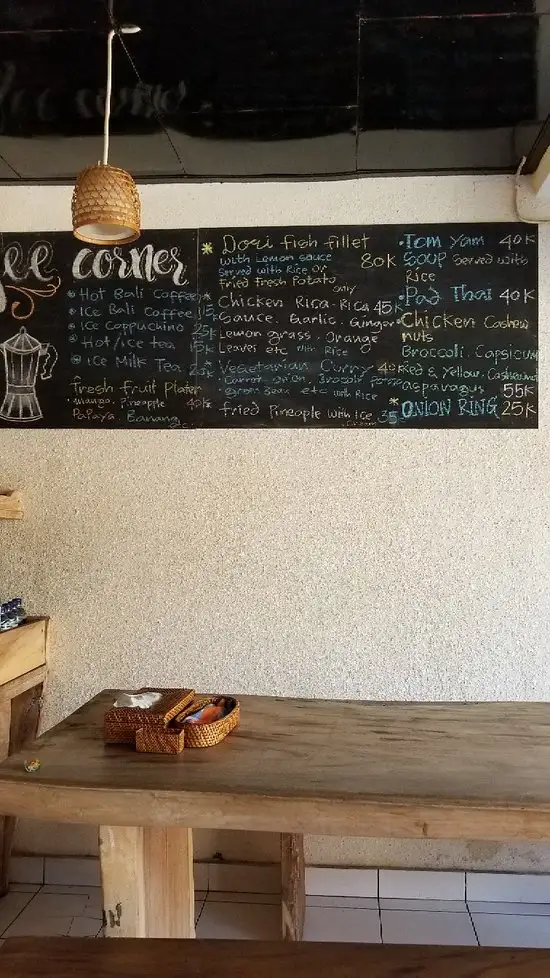 corner
Hot Bali Coffee
Ice Bali Coffee
Ice Cappuchino 25K
Hot/ice tea 15K
ice Milk Tea
Fresh fruit Plater
Mango. Pineapple
Papaya. Banana
* Dori fish fillet
with Lemon sauce 80K
Served with Rice Or
Fried Fresh Potato
only
Chicken Rica-Rica 45K
Sauce. Garlic. Ginger
Lemon grass. Orange
Leaves etc with Rice
Vegetarian Curry
etc with Rice
fried Pineople with ice 35
• Tom Yam 40K
Soup Served with
Rice
• Pad Thai 40K
• Chicken Cashew
nuts
Broccoli. Capsicum
Red & Yellow.
asparagus 55K
* ONION RING 25K